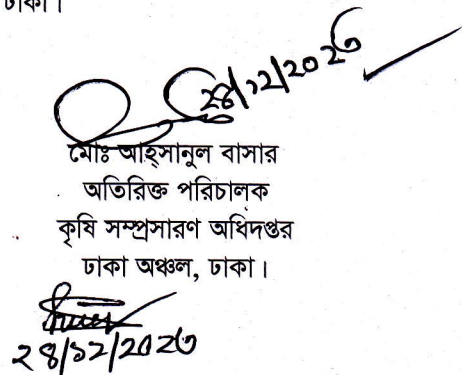 ঢাকা।
২৪/১২/২০২৩
মোঃ আহ্সানুল বাসার
অতিরিক্ত পরিচালক
কৃষি সম্প্রসারণ অধিদপ্তর
ঢাকা অঞ্চল, ঢাকা।
২৪/১২/২০২৩